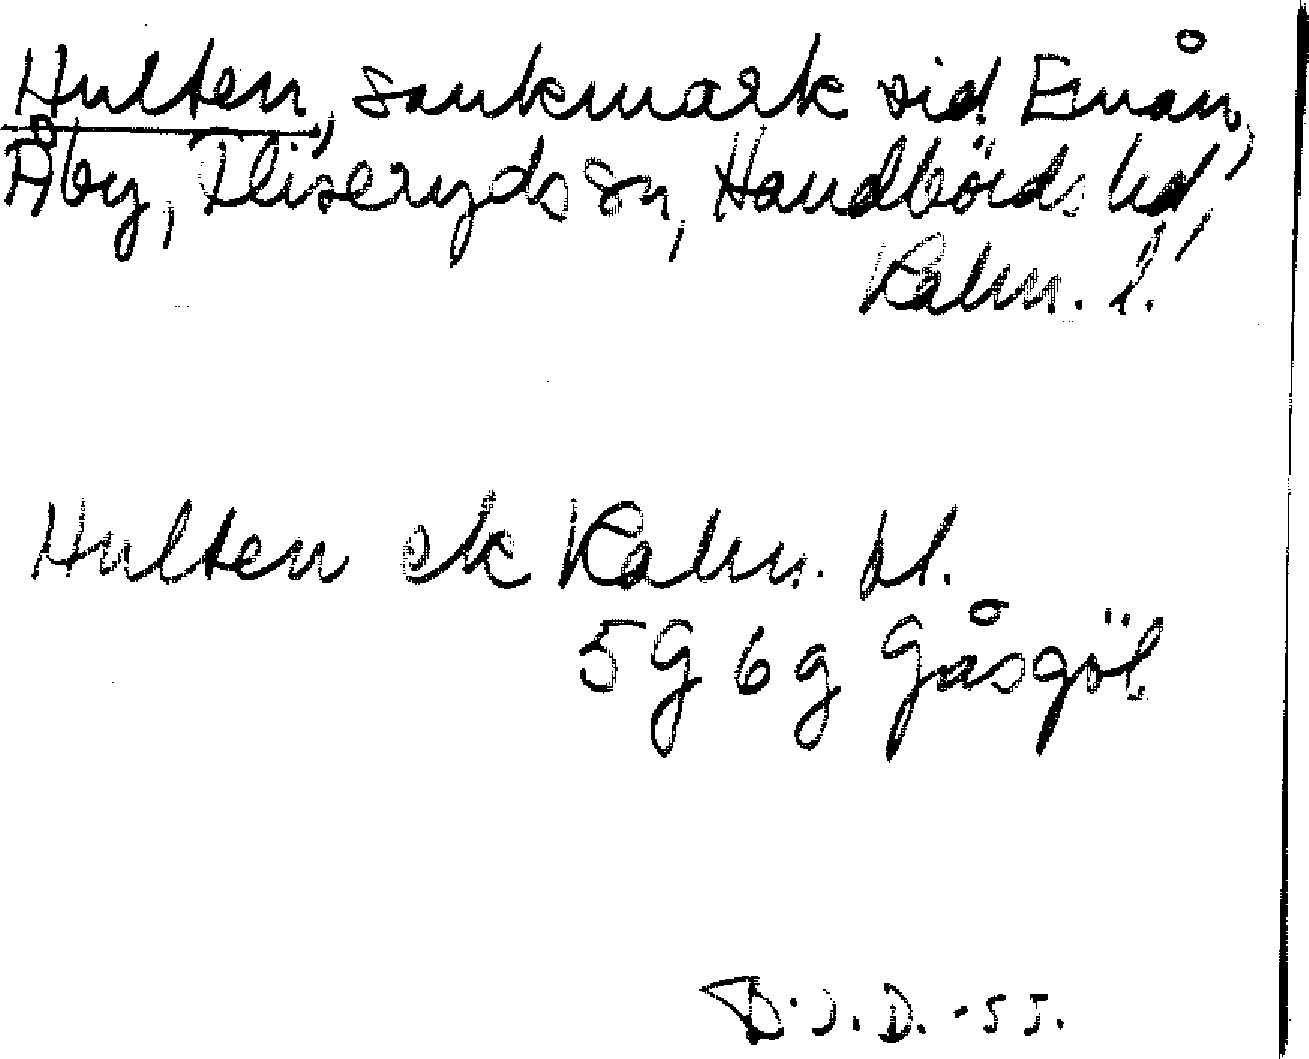 Hulten, sankmark vid Emån,
Åby, Fliseryds sn, Handbörds hd,
Kalm. l.
Hulten ek Kalm. bl.
5G 6g Gåsgöl
B.J.D. -55.